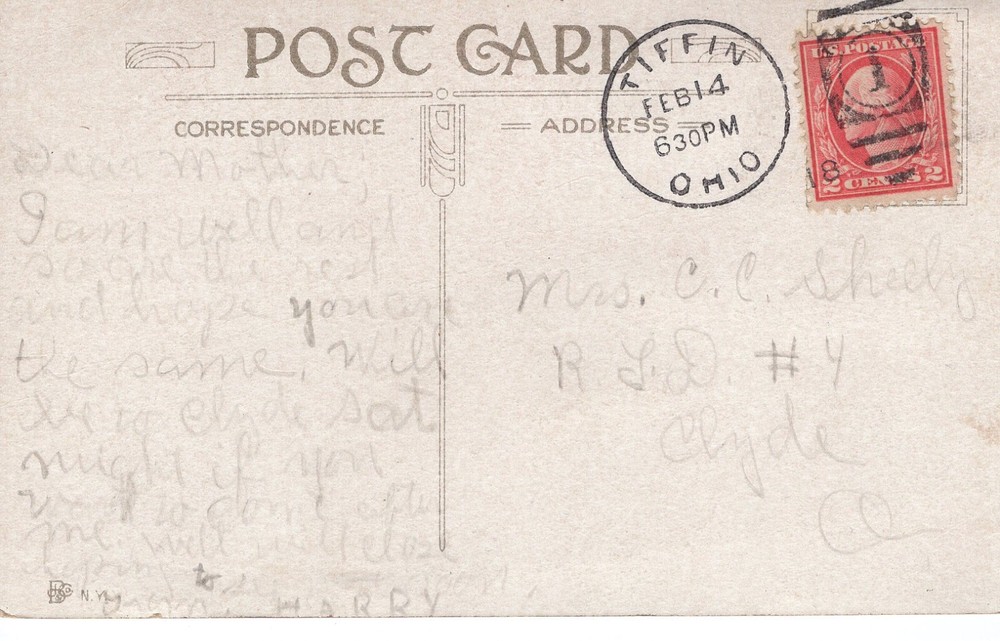 POST CARD
CORRESPONDENCE
ADDRESS
TIFFIN
FEB 14
630 PM
OHIO
18
U.S. POSTAGE
1
2 CENTS 2
Dear Mother,
I am well and
so are the rest
and hope you are
the same. Will
be in Clyde Sat
night if you
want to come after
me. Well will close
hoping to
from, HARRY
Mrs. C. C. Sheely
R. F. D. #4
Clyde
O.
N.Y.